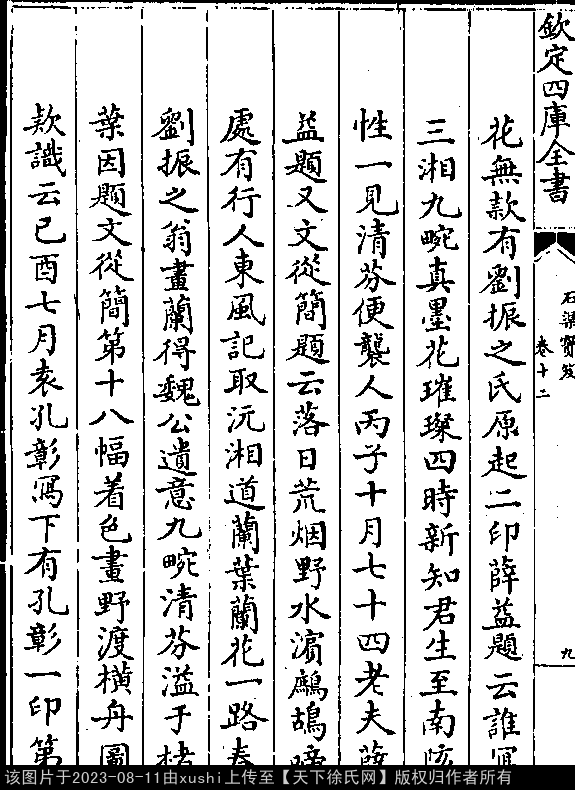 欽定四庫全書
石渠寶笈
卷十二
九
花無款有劉振之氏原起二印薛益題云誰冩
三湘九畹真墨花璀璨四時新知君生至南陔
性一見清芬便襲人丙子十月七十四老夫薛
益題又文從簡題云落日荒烟野水濵鷓鴣啼
處有行人東風記取沅湘道蘭葉蘭花一路春
劉振之翁畫蘭得魏公遺意九畹清芬溢于楮
葉因題文從簡第十八幅着色畫野渡横舟圖
欵識云己酉七月袁孔彰冩下有孔彰一印第
该图片于2023-08-11由xushi上传至【天下徐氏网】版权归作者所有